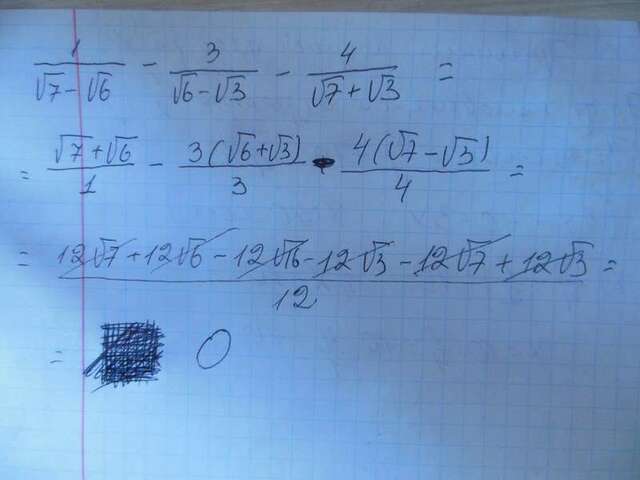 1/(√7-√6) - 3/(√6-√3) - 4/(√7+√3) =
= (√7+√6)/1 - 3(√6+√3)/3 - 4(√7-√3)/4 =
= (12√7+12√6-12√6-12√3-12√7+12√3)/12 =
= 0